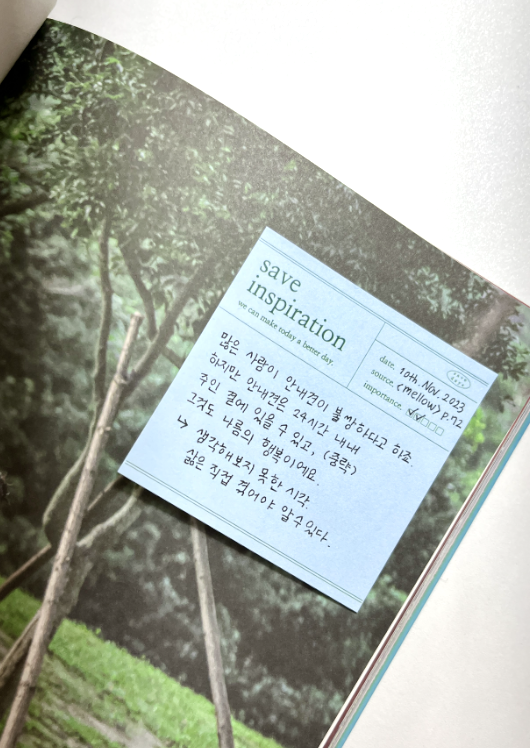 save
inspiration
we can make today a better day.
date. 10th. Nov. 2023
source. <mellow> p.12
importance. ✓✓□□□
많은 사람이 안내견이 불쌍하다고 하죠.
하지만 안내견은 24시간 내내
주인 곁에 있을 수 있고, (중략)
그것도 나름의 행복이에요.
↳ 생각해보지 못한 시각.
삶은 직접 겪어야 알 수 있다.